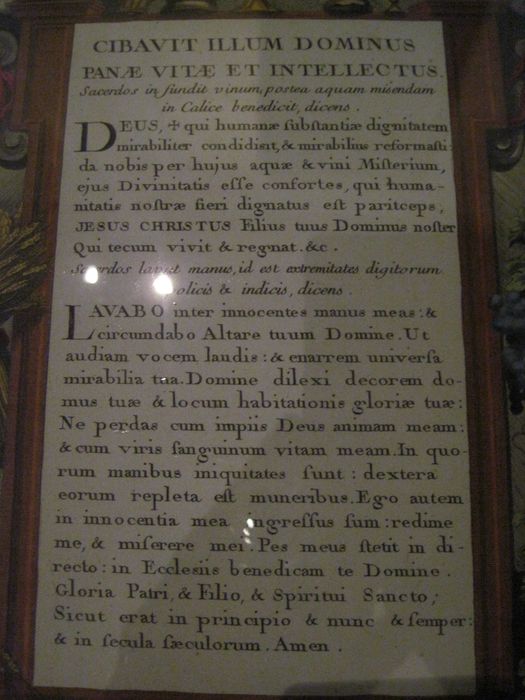 CIBAVIT ILLUM DOMINUS
PANÆ VITÆ ET INTELLECTUS.
Sacerdos in fundit vinum, postea aquam misendam
in Calice benedicit, dicens .
DEUS, ✠ qui humanæ ſubſtantiæ dignitatem
mirabiliter condidiſti, & mirabilius reformaſti:
da nobis per hujus aquæ & vini Miſterium,
ejus Divinitatis eſſe confortes, qui huma-
nitatis noſtræ fieri dignatus eſt pariticeps,
JESUS CHRISTUS Filius tuus Dominus noſter
Qui tecum vivit & regnat. &c .
Sacerdos lavat manus, id est extremitates digitorum
policis & indicis, dicens .
LAVABO inter innocentes manus meas : &
circumdabo Altare tuum Domine. Ut
audiam vocem laudis : & enarrem univerſa
mirabilia tua. Domine dilexi decorem do-
mus tuæ & locum habitationis gloriæ tuæ:
Ne perdas cum impiis Deus animam meam:
& cum viris ſanguinum vitam meam. In quo-
rum manibus iniquitates ſunt : dextera
eorum repleta eſt muneribus. Ego autem
in innocentia mea ingreſſus ſum : redime
me, & miſerere mei. Pes meus ſtetit in di-
recto : in Eccleſiis benedicam te Domine .
Gloria Patri, & Filio, & Spiritui Sancto;
Sicut erat in principio & nunc & ſemper:
& in ſecula ſæculorum. Amen .